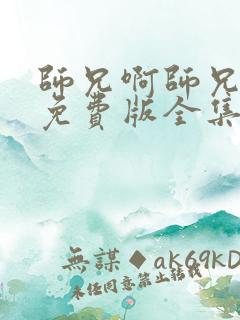 師兄啊師兄
免費版全集
無謀◆ak69kD
未经同意禁止转载